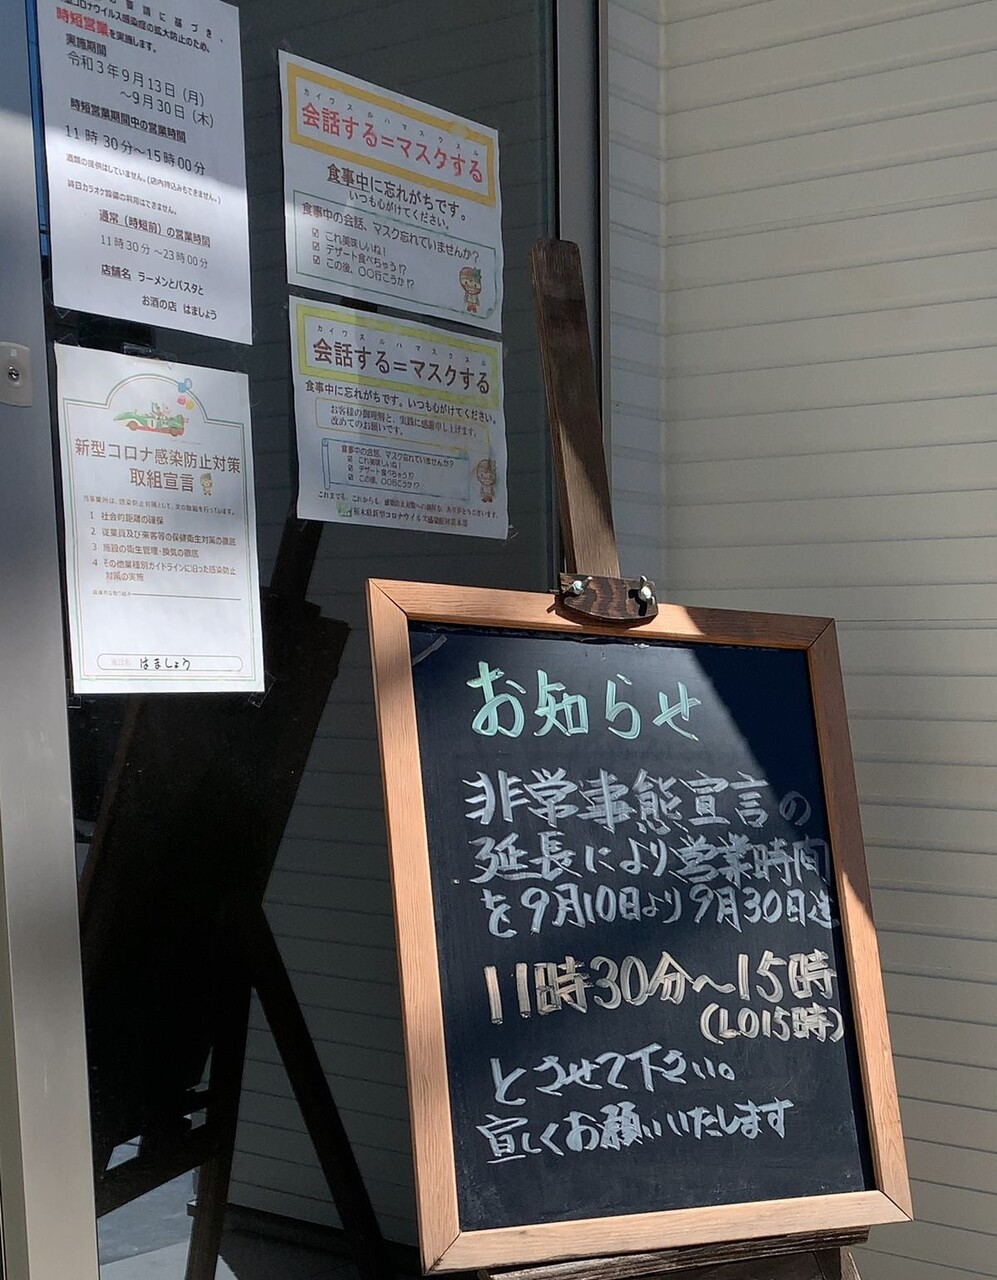 型コロナウイルス感染症の拡大防止のため、
時短営業を実施します。
実施期間
令和3年9月13日(月)
～9月30日(木)
時短営業期間中の営業時間
11時30分～15時00分
酒類の提供はしていません。(店内持込みもできません。)
終日カラオケ設備の利用はできません。
通常(時短前)の営業時間
11時30分～23時00分
店舗名 ラーメンとパスタと
お酒の店 はましょう
カイワスルハマスクスル
会話する=マスクする
食事中に忘れがちです。
いつも心がけてください。
食事中の会話、マスク忘れていませんか?
☑ これ美味しいね!
☑ デザート食べちゃう!?
☑ この後、〇〇行こうか!?
カイワスルハマスクスル
会話する=マスクする
食事中に忘れがちです。いつも心がけてください。
お客様の御理解と、実践に感謝申し上げます。
改めてのお願いです。
食事中の会話、マスク忘れていませんか?
☑ これ美味しいね!
☑ デザート食べちゃう!?
☑ この後、〇〇行こうか!?
これまでも、これからも、感染防止対策への御協力、ありがとうございます。
栃木県新型コロナウイルス感染症対策本部
新型コロナ感染防止対策
取組宣言
当事業所は、感染防止対策として、次の取組を行っています。
1 社会的距離の確保
2 従業員及び来客等の保健衛生対策の徹底
3 施設の衛生管理・換気の徹底
4 その他業種別ガイドラインに沿った感染防止
対策の実施
はましょう
お知らせ
非常事態宣言の
延長により営業時間
を9月10日より9月30日迄
11時30分～15時
(LO15時)
とさせて下さい。
宜しくお願いいたします